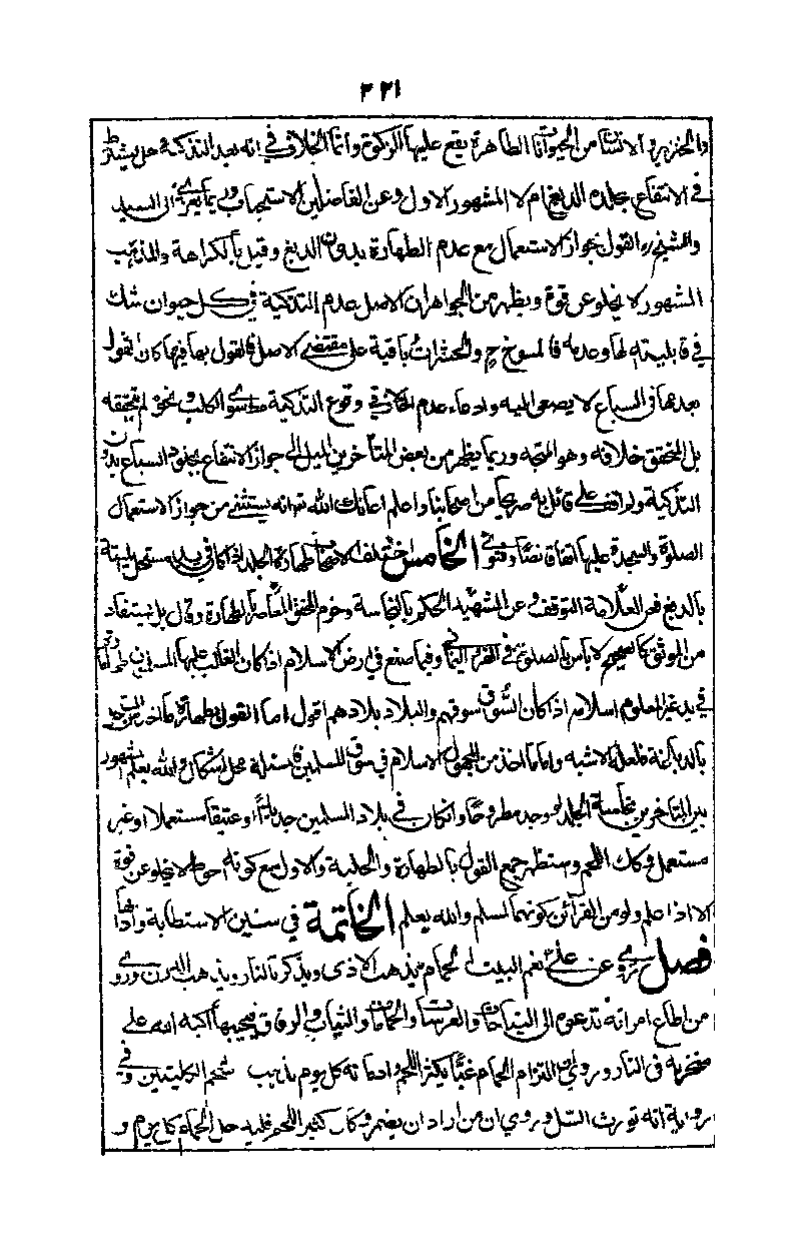 ٣٢١
والخنزير والانسان من الحيوانات الطاهرة يقع عليها الزكوة وانما الخلاف في انه بعد التذكية هل يشترط
في الانتفاع بجلده الدبغ ام لا المشهور الاول وعن الفاضلين الاستحباب وربما يعزى الى السيد
والشيخ ره القول بجواز الاستعمال مع عدم الطهارة بدون الدبغ وقيل بالكراهة والمذهب
المشهور لا يخلو عن قوة ويظهر من الجواهر ان الاصل عدم التذكية في كل حيوان شك
في قابليته لها وعدمه فالمسوخ ح والحشرات باقية على مقتضى الاصل فالقول بها فيها كالقول
بعدمها في السباع لا يصغى اليه وادعاء عدم الخلاف في وقوع التذكية ما سوى الكلب ونحوه لم نتحققه
بل المحقق خلافه وهو المتجه وربما يظهر من بعض المتأخرين الميل الى جواز الانتفاع بجلود السباع بدون
التذكية ولم اقف على قائل به صريحا من اصحابنا واعلم اعانك الله تع انه يستثنى من جواز الاستعمال
الصلوة والسجدة عليها اتفاقا نصا وفتوى الخامس اختلف الاصحاب طهارة الجلد اذا كان في يد مستحل الميتة
بالدبغ فعن العلامة التوقف وعن الشهيد الحكم بالنجاسة وجزم المحقق المعاصر بالطهارة وقال بل يستفاد
من الموثق كالصحيح لا بأس بالصلوة في الفراء اليماني وفيما صنع في ارض الاسلام اذا كان الغالب عليها المسلمين
في يد غير المعلوم اسلامه اذا كان السوق سوقهم والبلاد بلادهم اقول اما القول بطهارة ما اخذ من المستحل
بالدباغة فلعله الاشبه واما ما اخذ من المجهول الاسلام في سوق المسلمين فالمسئلة محل اشكال والله يعلم المشهور
بين المتاخرين نجاسة الجلد لو وجد مطروحا وان كان في بلاد المسلمين جديدا او عتيقا مستعملا او غير
مستعمل وكك اللحم واستظهر جمع القول بالطهارة والحلية والاول مع كونه احوط لا يخلو عن قوة
الا اذا علم ولو من القرائن كونهما لمسلم والله يعلم الخاتمة في سنن الاستطابة وآدابها
فصل روى عن علي ع نعم البيت الحمام يذهب الاذى ويذكر بالنار ويذهب الدرن وروى
من اطاع امراته تدعوه الى النياحات والعرسات والحمامات والثياب الرقاق فيجيبها اكبه الله على
منخريه في النار وروي ان التزام الحمام غبا يكثر اللحم وادمانه كل يوم يذهب شحم الكليتين وفي
رواية انه يورث السل وروي ان من اراد ان يضمر وكان كثير اللحم فليدخل الحمام كل يوم و